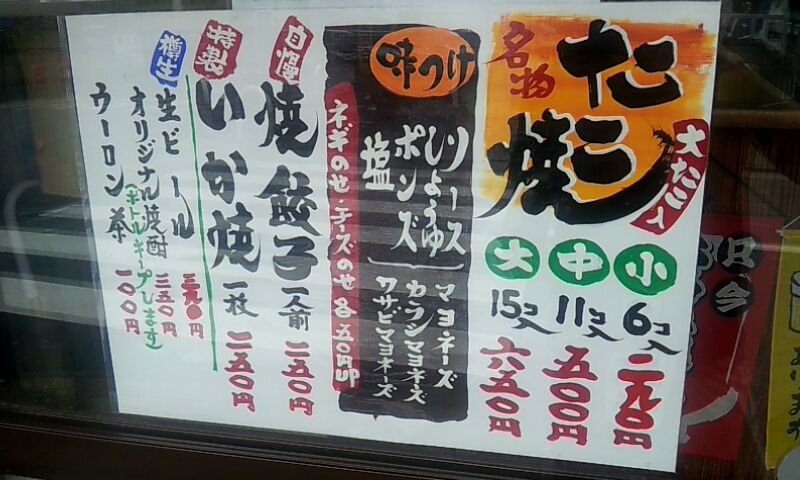 名物
たこ焼
大たこ入
小 6コ入 二九〇円
中 11コ入 五〇〇円
大 15コ入 六五〇円
味つけ
ソース
しょうゆ
ポンズ
塩
マヨネーズ
カラシマヨネーズ
ワサビマヨネーズ
ネギのせ・チーズのせ 各五〇円UP
自慢
焼餃子 一人前 二五〇円
特製
いか焼 一枚 二五〇円
樽生
生ビール 三九〇円
オリジナル焼酎 三五〇円
(ボトルキープします)
ウーロン茶 一〇〇円
只今